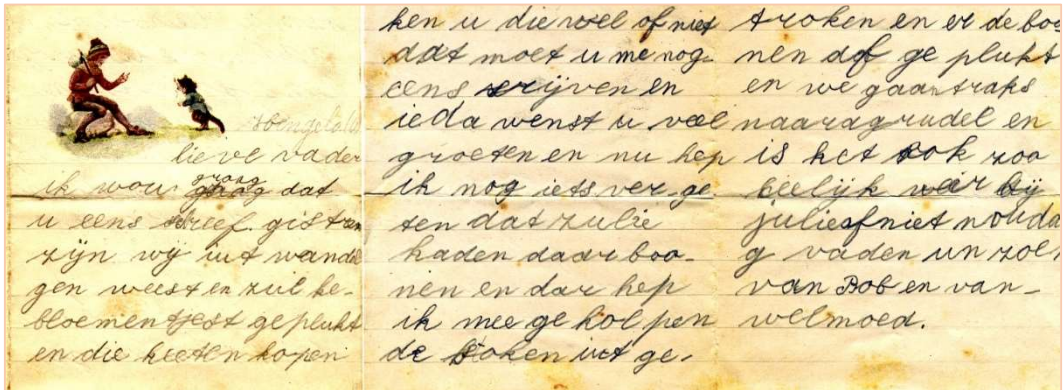 Hengelo
lieve vader
ik wou graag dat
u eens schreef. gistren
zijn wij uit wande
gen weest en zul he-
bloemen ge plukt
en die heeten kopen
ken u die wel of niet
dat moet u me nog-
eens srijven en
ieda wenst u veel
groeten en nu hep
ik nog iets ver ge
ten dat zulie
haden daar boo-
nen en dar hep
ik mee ge hol pen
de stoken uit ge.
troken en er de boo
nen af ge plukt
en we gaan straks
naar agrudel en
is het ook zoo
eelijk weir bij
julie of niet nou da
g vaden un zoe,
van Bob en van-
welmoed.